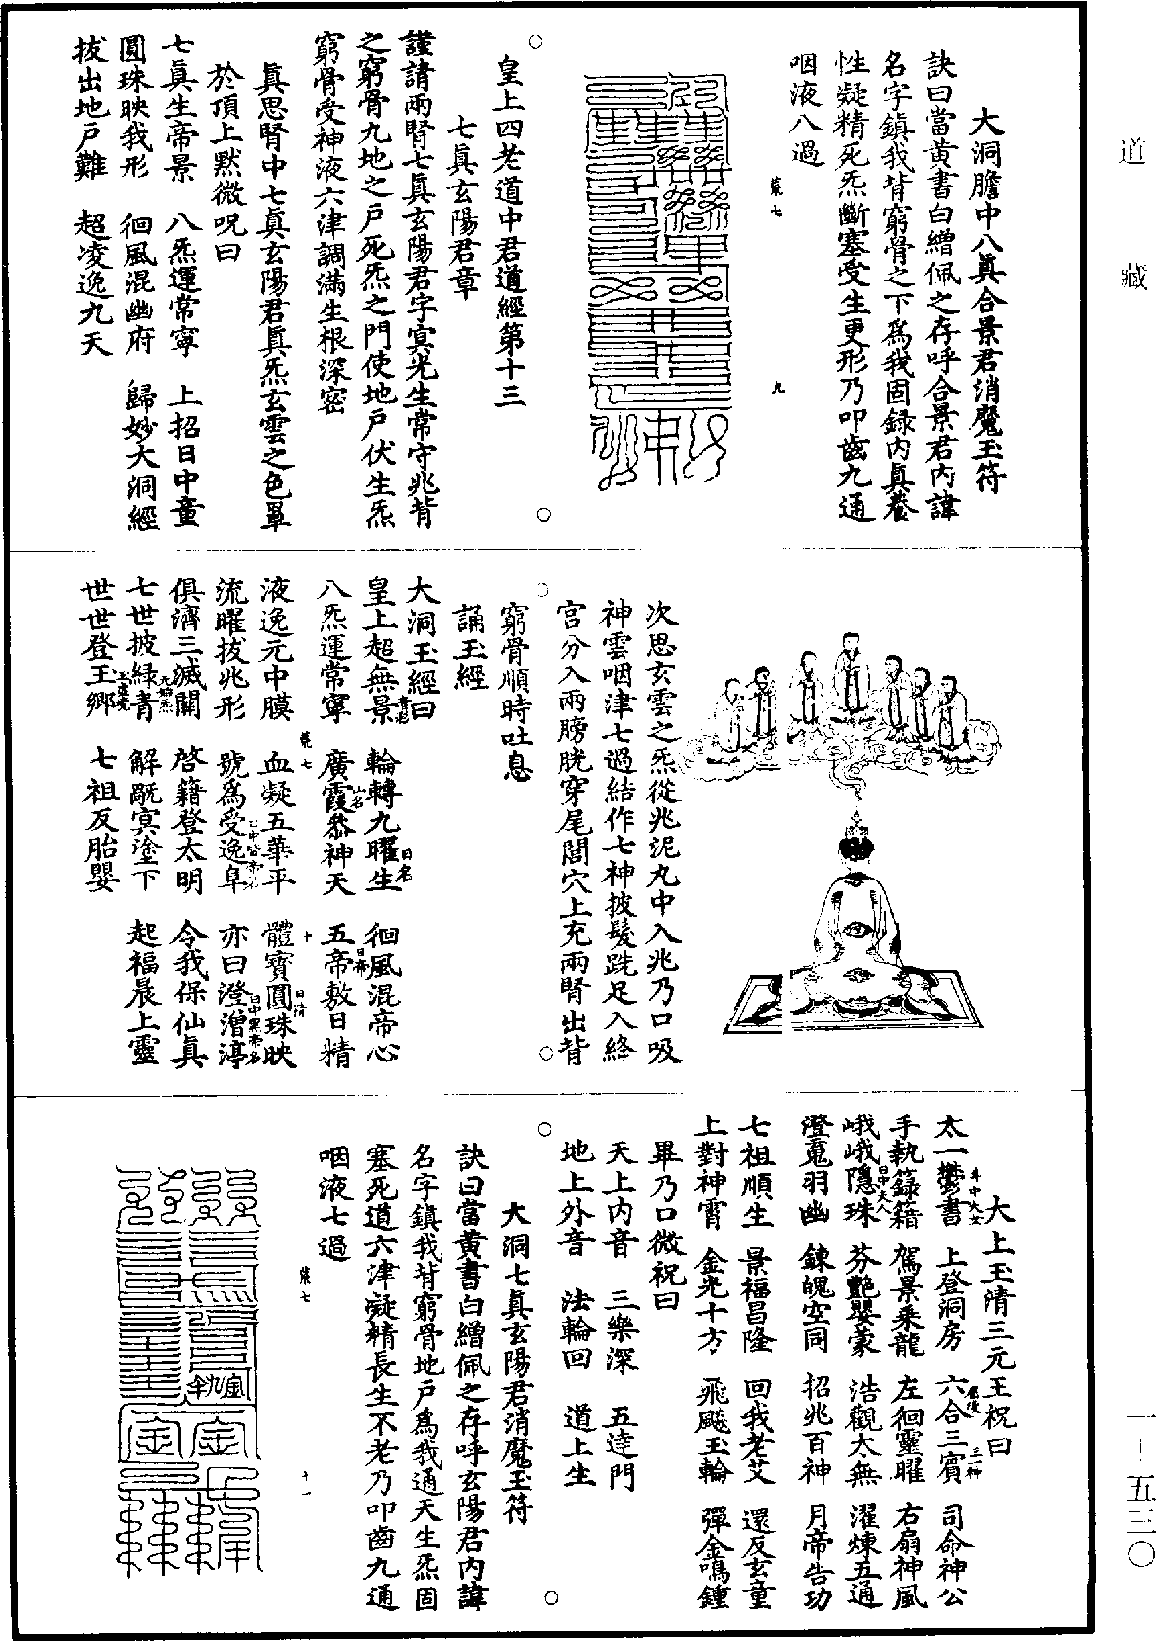 道藏
一—五三〇
大洞膽中八真合景君消魔玉符
訣曰當黃書白繒佩之存呼合景君內諱
名字鎮我背窮骨之下爲我固錄內真養
性凝精死炁斷塞受生更形乃叩齒九通
咽液八過
九
皇上四老道中君道經第十三
七真玄陽君章
謹請兩腎七真玄陽君字㝠光生常守兆背
之窮骨九地之戶死炁之門使地戶伏生炁
窮骨受神液六津調滿生根深密
真思腎中七真玄陽君真炁玄雲之色罩
於頂上默微呪曰
七真生帝景　八炁運常寧　上招日中童
圓珠映我形　徊風混幽府　歸妙大洞經
拔出地戶難　超凌逸九天
次思玄雲之炁從兆泥丸中入兆乃口吸
神雲咽津七過結作七神披髮跣足入絡
宮分入兩膀胱穿尾閭穴上充兩腎出背
窮骨順時吐息
誦玉經
大洞玉經曰
皇上超無景　輪轉九曜生日名　徊風混帝心
八炁運常寧　廣霞山名恭神天　五帝日帝敷日精
液逸元中膜　血凝五華平　體寶圓珠映
流曜拔兆形　號爲受逸阜　亦曰澄渟
俱濟三滅關　啓籍登太明　令我保仙真
七世披綠青　解厭㝠塗下　起福晨上靈
世世登玉鄉　七祖反胎嬰
十
大上玉清三元王祝曰
太一鬱書　上登洞房　六合三賓　司命神公
手執錄籍　駕景乘龍　左徊靈曜　右扇神風
峨峨隱珠日中夫人　芬艷嬰蒙　浩觀太無　濯煉五通
澄羽幽　鍊魄空同　招兆百神　月帝告功
七祖順生　景福昌隆　回我老艾　還反玄童
上對神霄　金光十方　飛飈玉輪　彈金鳴鍾
畢乃口微祝曰
天上內音　三樂深　五達門
地上外音　法輪回　道上生
大洞七真玄陽君消魔玉符
訣曰當黃書白繒佩之存呼玄陽君內諱
名字鎮我背窮骨地戶爲我通天生炁固
塞死道六津凝精長生不老乃叩齒九通
咽液七過
十一